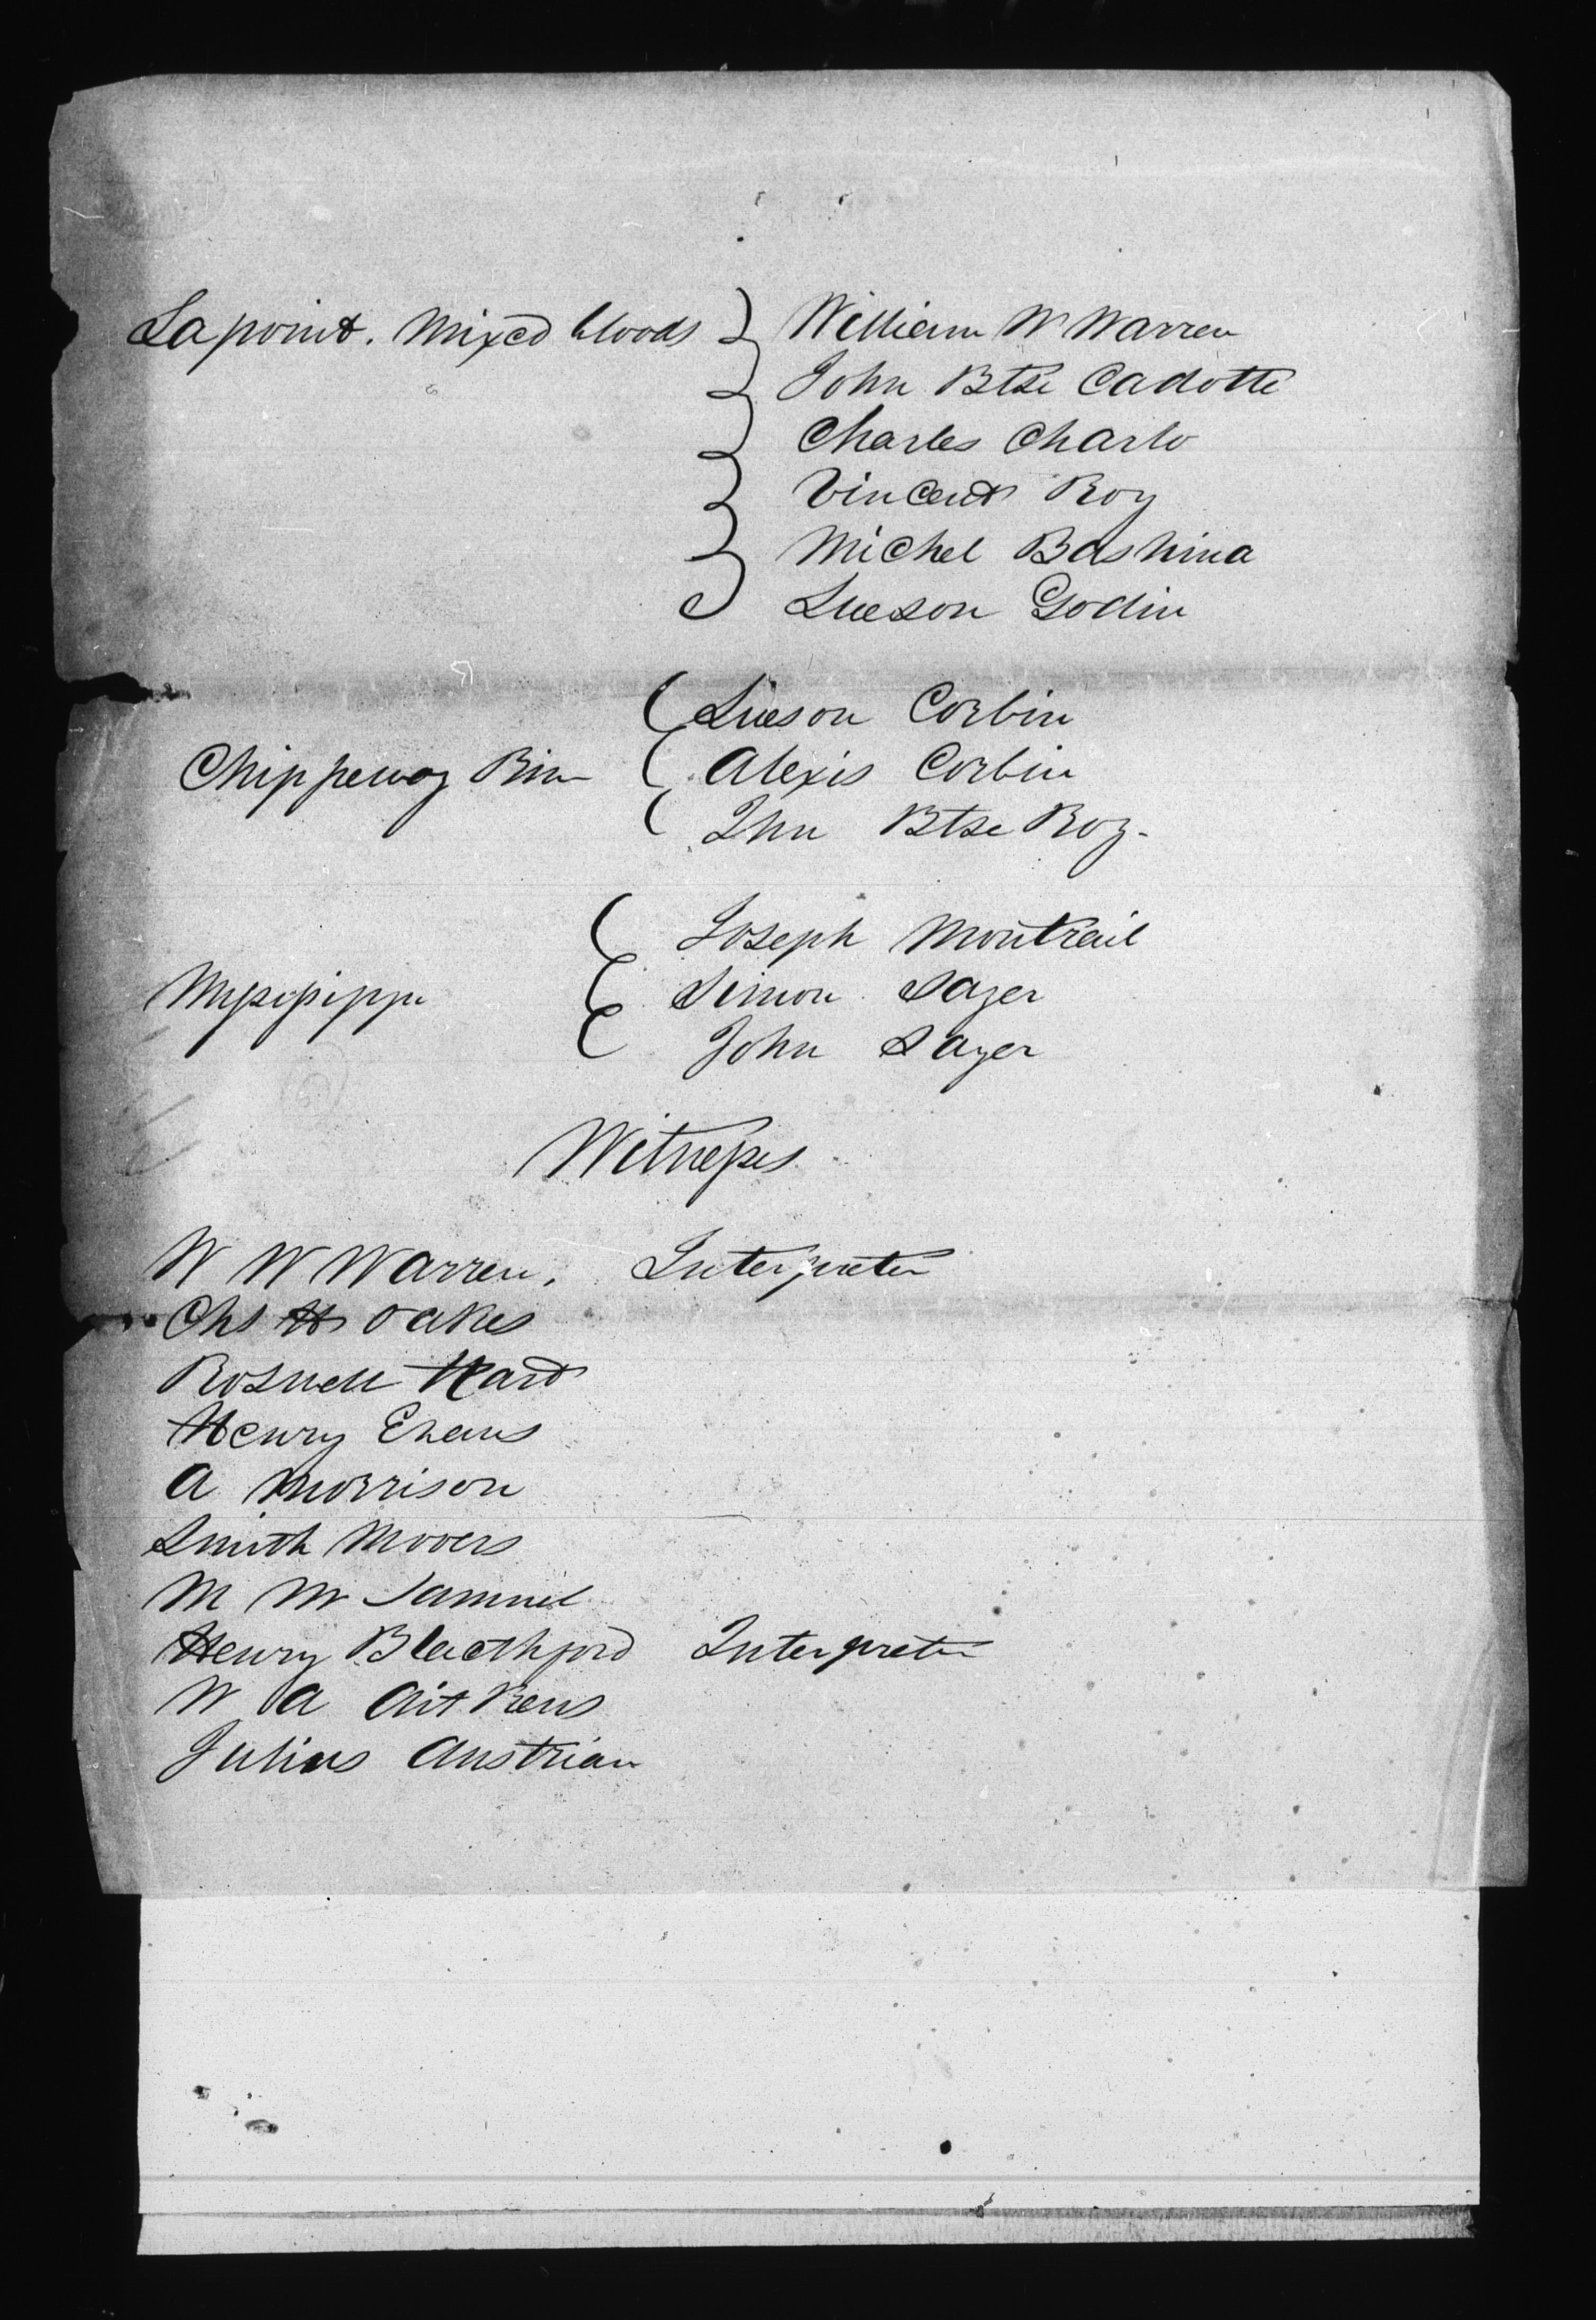 Lapoint. Mixed bloods William W Warren
John Btse Cadotte
Charles Charlo
Vincent Roy
Michel Bashina
Lueson Godin
Lueson Corbin
Chippeway Alexis Corbin
Jhn Btse Roy.
Joseph Montreil
Missisippi Simon Sayer
John Sayer
Witnesses
W W Warren. Interpreter
Chs H Oakes
Roswell Hart
Henry Evans
A Morrison
Smith Mooers
M M Samuel
Henry Blacthford Interpreter
W A Aitkens
Julius Austrian